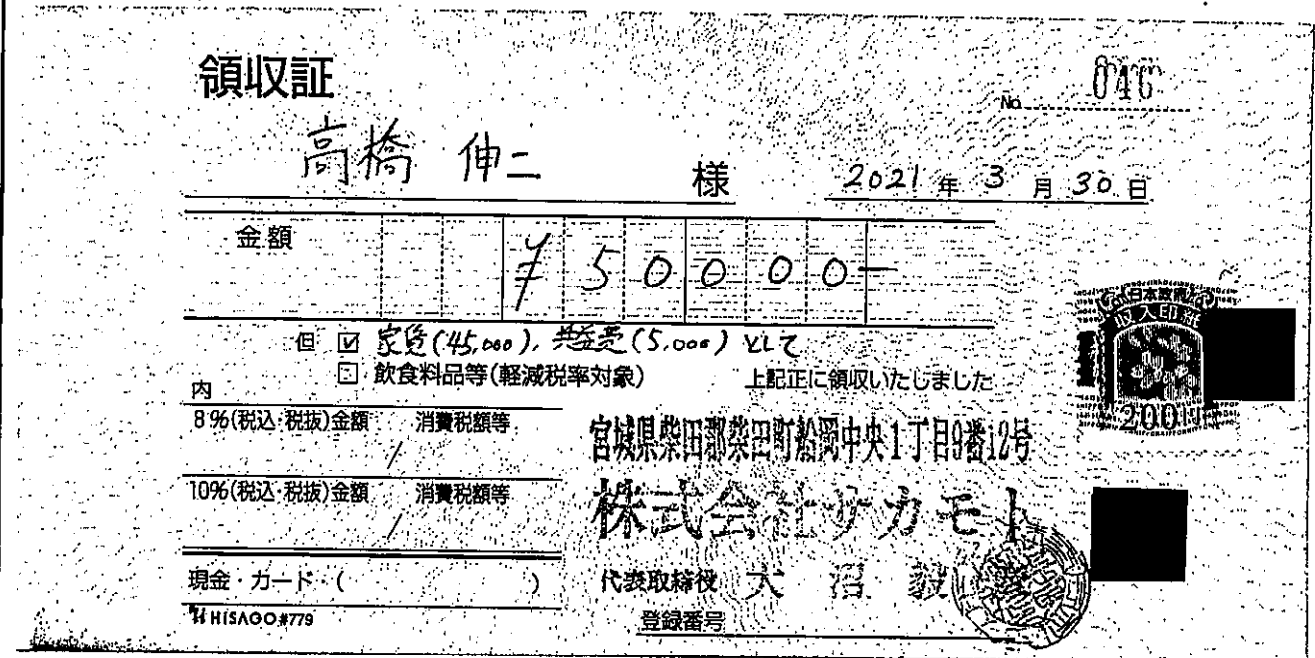 領収証
No. 046
高橋 伸二 様
2021年 3月 30日
金額
¥50000-
但 ☑ 家賃(45,000), 共益費(5,000) として
□ 飲食料品等(軽減税率対象)
上記正に領収いたしました
内
8%(税込・税抜)金額 消費税額等
/
10%(税込・税抜)金額 消費税額等
/
現金・カード・( )
HISAGO #779
日本政府
収入印紙
200円
宮城県柴田郡柴田町船岡中央1丁目9番12号
株式会社サカモト
代表取締役 大沼 毅
登録番号